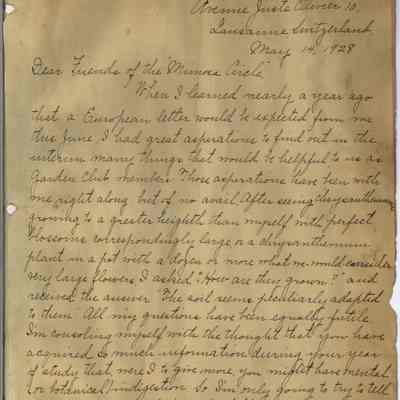 Avenue Juste Olivier 10,
Lausanne Switzerland
May 14, 1928
Dear Friends of the "Mimosa Circle",
When I learned nearly a year ago
that a European letter would be expected from me
this June, I had great aspirations to find out in the
interim many things that would be helpful to us as
Garden Club members. Those aspirations have been with
me right along but of no avail. After seeing chrysanthemums
growing to a greater heighth than myself with perfect
blossoms correspondingly large or a chrysanthemum
plant in a pot with a dozen or more what we would consider
very large flowers, I asked, "How are they grown?" and
received the answer "The soil seems peculiarly adapted
to them." All my questions have been equally futile.
I'm consoling myself with the thought that you have
acquired so much information during your year
of study that, were I to give more, you might have mental
(or botanical) indigestion. So I'm only going to try to tell